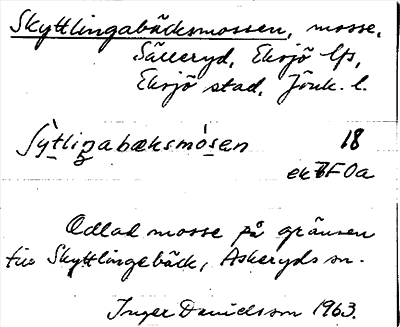 Skyttlingabäcksmossen, mosse,
Sälleryd, Eksjö lfs,
Eksjö stad, Jönk. l.
18
Odlad mosse på gränsen
till Skyttlingebäck, Askeryds sn.
Inger Danielsson 1963.